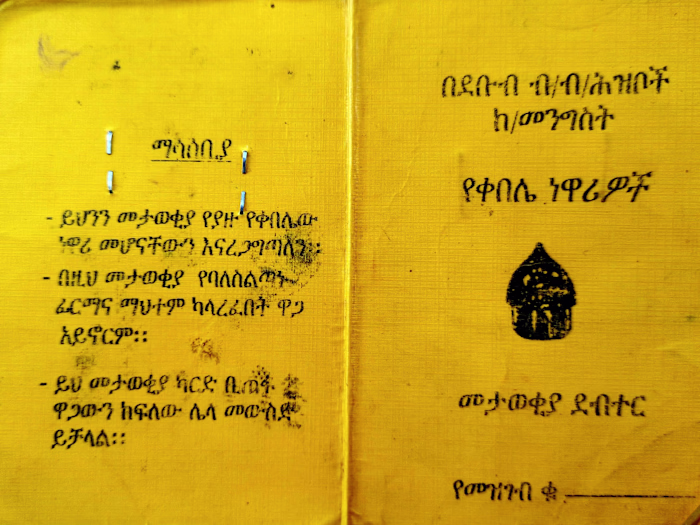 ማሳሰቢያ
- ይህንን መታወቂያ የያዙ የቀበሌው
ነዋሪ መሆናቸውን እናረጋግጣለን፡፡
- በዚህ መታወቂያ የባለስልጣኑ
ፊርማና ማህተም ካላረፈበት ዋጋ
አይኖርም፡፡
- ይህ መታወቂያ ካርድ ቢጠፋ
ዋጋውን ከፍለው ሌላ መውሰድ
ይቻላል፡፡
በደቡብ ብ/ብ/ሕዝቦች
ከ/መንግስት
የቀበሌ ነዋሪዎች
መታወቂያ ደብተር
የመዝገብ ቁ